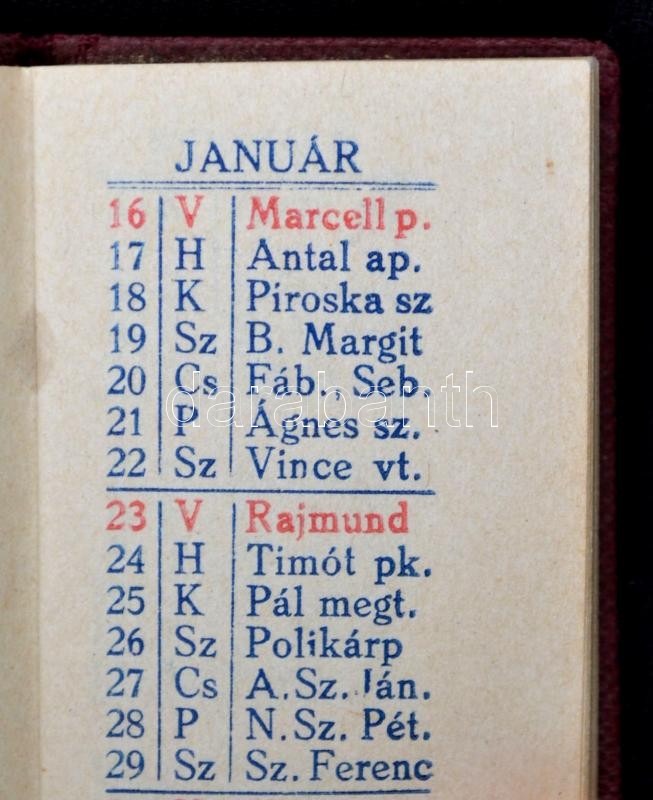 JANUÁR
16 V Marcell p.
17 H Antal ap.
18 K Piroska sz
19 Sz B. Margit
20 Cs Fáb., Seb.
darabanth
21 P Ágnes sz.
22 Sz Vince vt.
23 V Rajmund
24 H Timót pk.
25 K Pál megt.
26 Sz Polikárp
27 Cs A. Sz. Ján.
28 P N. Sz. Pét.
29 Sz Sz. Ferenc